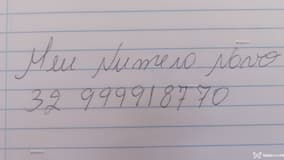 Meu Numero Novo
32 999918770